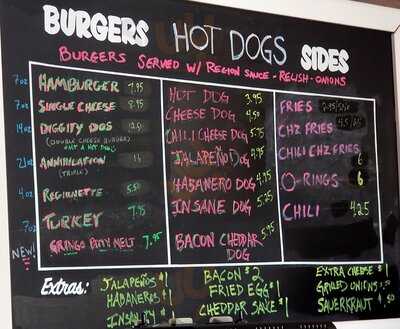 BURGERS HOT DOGS SIDES
BURGERS SERVED W/ REGION SAUCE - RELISH - ONIONS
7oz HAMBURGER 7.95
7oz SINGLE CHEESE 8.95
14oz DIGGITY DOS
(DOUBLE CHEESE BURGER)
NOT A HOT DOG!
21oz ANNIHILATION
(TRIPLE)
4oz REGIONETTE 5.50
7oz TURKEY
NEW! GRINGO PATTY MELT 7.95
HOT DOG 3.95
CHEESE DOG 4.50
CHILI CHEESE DOG 5.25
JALAPEÑO DOG 4.95
HABANERO DOG 4.95
INSANE DOG 5.25
BACON CHEDDAR DOG 5.95
FRIES
CHZ FRIES
CHILI CHZ FRIES 6
O-RINGS 6
CHILI 4.25
Extras:
JALAPEÑOS $1
HABANEROS $1
INSANITY $1
BACON $2
FRIED EGG $1
CHEDDAR SAUCE $1
EXTRA CHEESE $1
GRILLED ONIONS .50
SAUERKRAUT .50